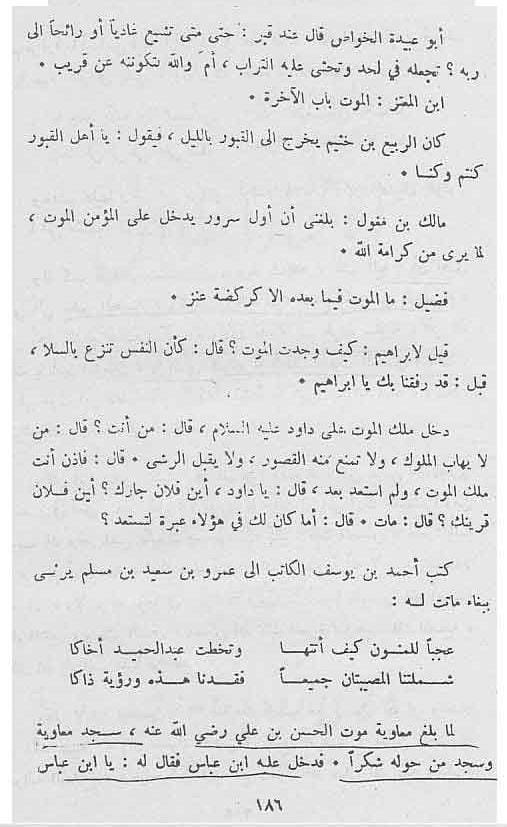 أبو عبيدة الخواص قال عند قبر : حتى متى تشيع غادياً أو رائحاً الى
ربه ؟ تجعله في لحد وتحثى عليه التراب ، أم والله لتكوننه عن قريب •
ابن المعتز : الموت باب الآخرة •
كان الربيع بن خثيم يخرج الى القبور بالليل ، فيقول : يا أهل القبور
كنتم وكنا •
مالك بن مغول : بلغنى أن أول سرور يدخل على المؤمن الموت ،
لما يرى من كرامة الله •
فضيل : ما الموت فيما بعده الا كركضة عنز •
قيل لابراهيم : كيف وجدت الموت ؟ قال : كأن النفس تنزع بالسلا ،
قيل : قد رفقنا بك يا ابراهيم •
دخل ملك الموت على داود عليه السلام ، قال : من أنت ؟ قال : من
لا يهاب الملوك ، ولا تمنع منه القصور ، ولا يقبل الرشى • قال : فاذن أنت
ملك الموت ، ولم استعد بعد ، قال : يا داود ، أين فلان جارك ؟ أين فلان
قريبك ؟ قال : مات • قال : أما كان لك في هؤلاء عبرة لتستعد ؟
كتب أحمد بن يوسف الكاتب الى عمرو بن سعيد بن مسلم يرثى
ببغاء ماتت له :
عجباً للمنون كيف أتتها وتخطت عبدالحميد أخاكا
شملتنا المصيبتان جميعاً فقدنا هذه ورؤية ذاكا
لما بلغ معاوية موت الحسن بن علي رضي الله عنه ، سجد معاوية
وسجد من حوله شكراً • فدخل عليه ابن عباس فقال له : يا ابن عباس
١٨٦